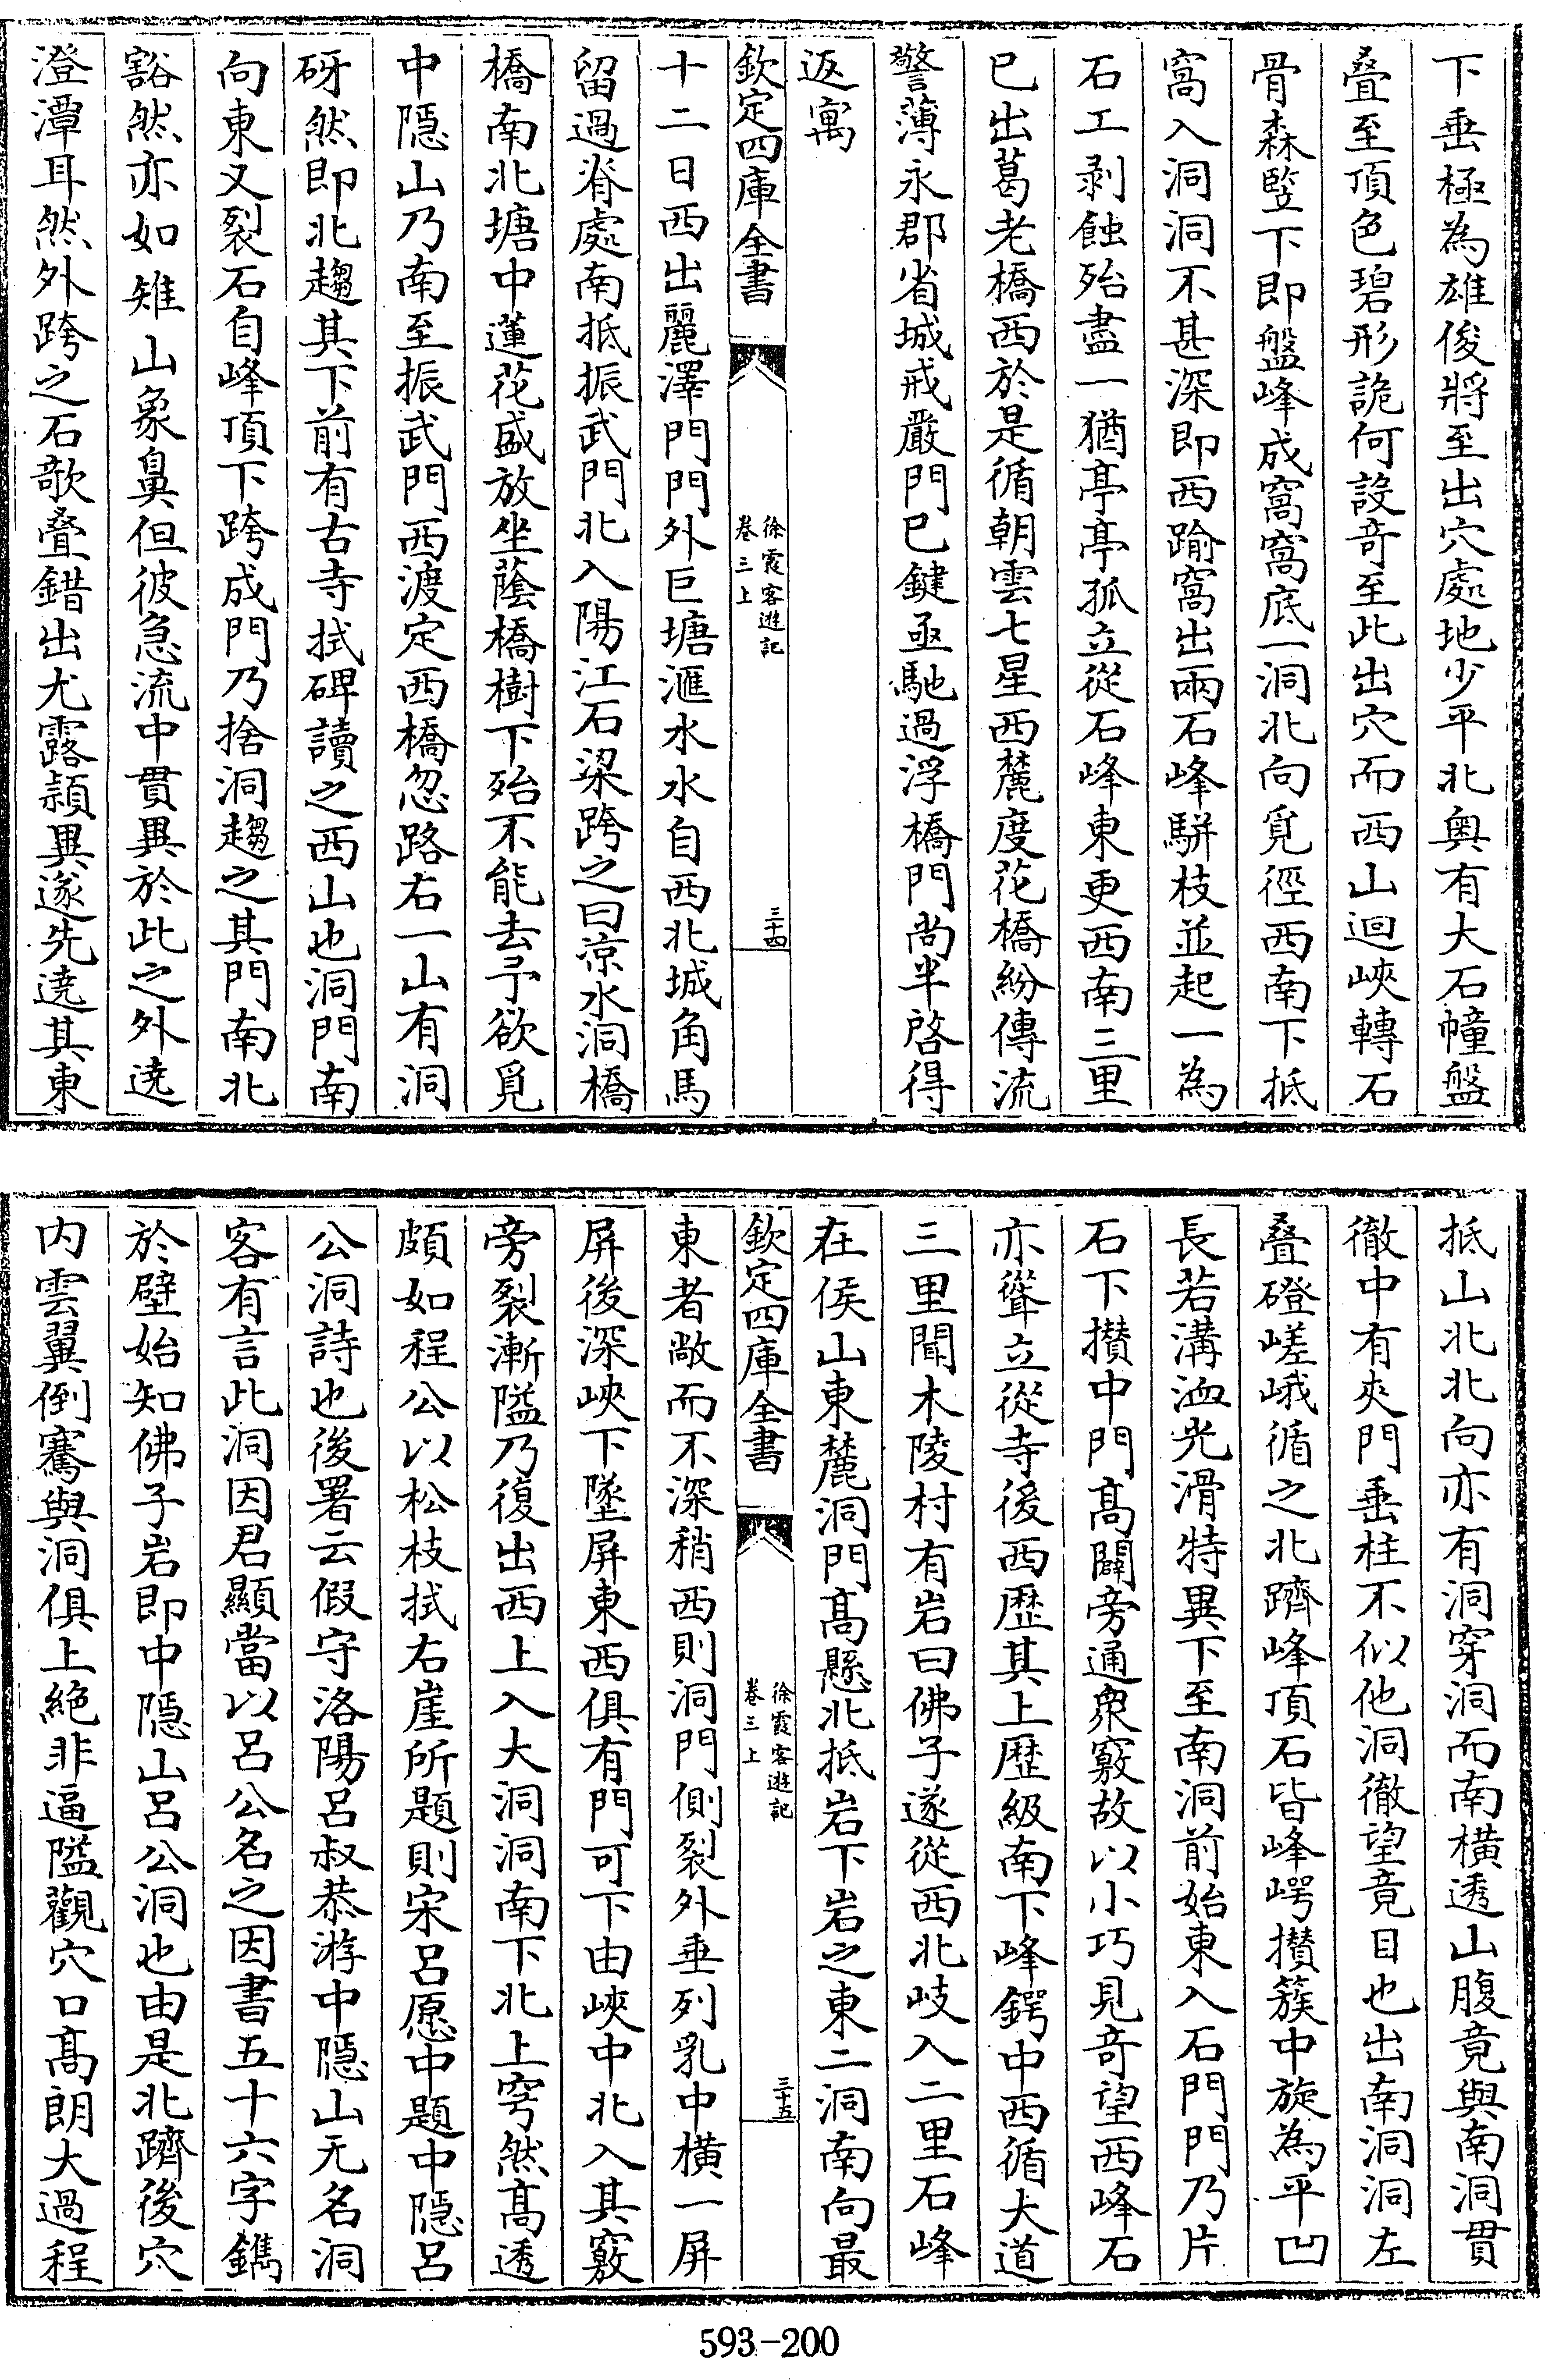 下垂極為雄俊將至出穴處地少平北奥有大石幢盤
疊至頂色碧形詭何設奇至此出穴而西山迴峽轉石
骨森竪下即盤峰成窩窩底一洞北向覓徑西南下抵
窩入洞洞不甚深即西踰窩出兩石峰駢枝並起一為
石工剥蝕殆盡一猶亭亭孤立從石峰東更西南三里
已出葛老橋西於是循朝雲七星西麓度花橋紛傳流
警薄永郡省城戒嚴門已鍵亟馳過浮橋門尚半啓得
返寓
欽定四庫全書
徐霞客遊記
卷三上
三十四
十二日西出麗澤門門外巨塘滙水水自西北城角馬
留過脊處南抵振武門北入陽江石梁跨之曰凉水洞橋
橋南北塘中蓮花盛放坐蔭橋樹下殆不能去予欲覓
中隱山乃南至振武門西渡定西橋忽路右一山有洞
砑然即北趨其下前有古寺拭碑讀之西山也洞門南
向東又裂石自峰頂下跨成門乃捨洞趨之其門南北
豁然亦如雉山象鼻但彼急流中貫異於此之外遶
澄潭耳然外跨之石欹疊錯出尤露頴異遂先遶其東
抵山北北向亦有洞穿洞而南横透山腹竟與南洞貫
徹中有夾門垂柱不似他洞徹望竟目也出南洞洞左
疊磴嵯峨循之北躋峰頂石皆峰崿攅簇中旋為平凹
長若溝洫光滑特異下至南洞前始東入石門門乃片
石下攅中門髙闢旁通衆竅故以小巧見奇望西峰石
亦聳立從寺後西歴其上歴級南下峰鍔中西循大道
三里聞木陵村有岩曰佛子遂從西北岐入二里石峰
在侯山東麓洞門髙懸北抵岩下岩之東二洞南向最
欽定四庫全書
徐霞客遊記
卷三上
三十五
東者敞而不深稍西則洞門側裂外垂列乳中横一屏
屏後深峽下墜屏東西俱有門可下由峽中北入其竅
旁裂漸隘乃復出西上入大洞洞南下北上穹然髙透
頗如程公以松枝拭右崖所題則宋呂愿中題中隱呂
公洞詩也後署云假守洛陽呂叔恭游中隱山无名洞
客有言此洞因君顯當以呂公名之因書五十六字鐫
於壁始知佛子岩即中隱山呂公洞也由是北躋後穴
内雲翼倒騫與洞俱上絶非逼隘觀穴口髙朗大過程
593-200